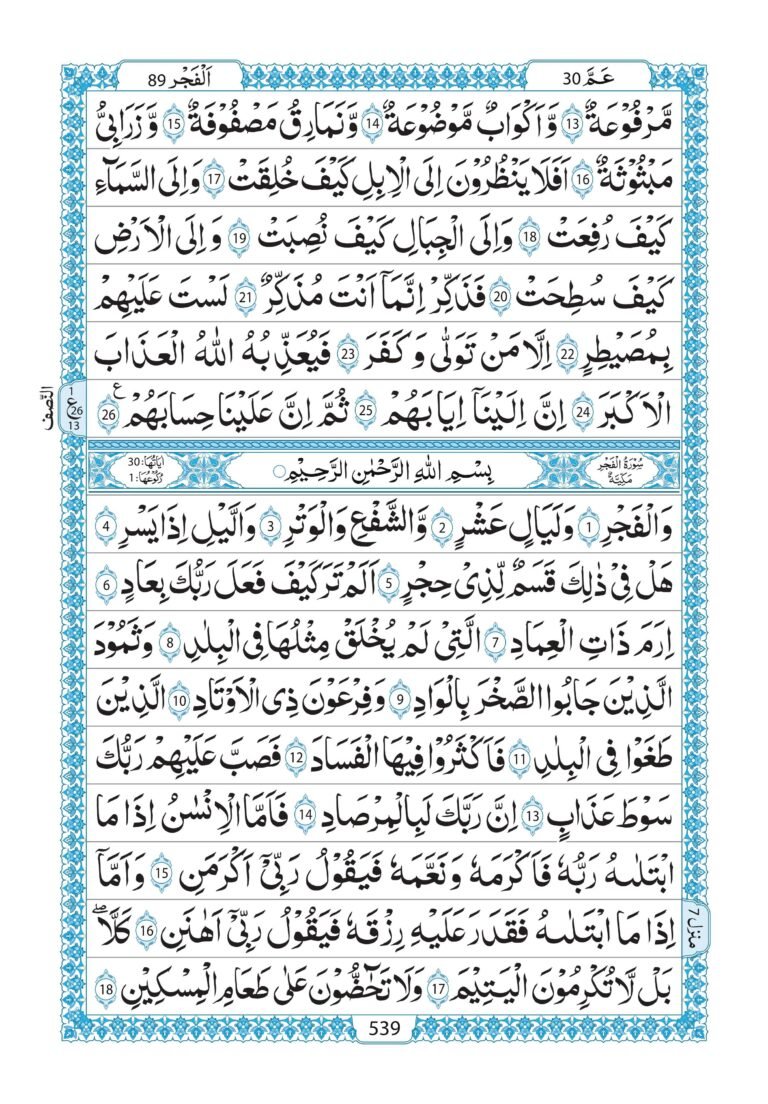 عَمَّ 30
اَلْفَجْر 89
مَّرْفُوْعَةٌ ۙ 13 وَّاَكْوَابٌ مَّوْضُوْعَةٌ ۙ 14 وَّنَمَارِقُ مَصْفُوْفَةٌ ۙ 15 وَّزَرَابِیُّ
مَبْثُوْثَةٌ ؕ 16 اَفَلَا یَنْظُرُوْنَ اِلَی الْاِبِلِ كَیْفَ خُلِقَتْ 17 وَاِلَی السَّمَآءِ
كَیْفَ رُفِعَتْ 18 وَاِلَی الْجِبَالِ كَیْفَ نُصِبَتْ 19 وَاِلَی الْاَرْضِ
كَیْفَ سُطِحَتْ 20 فَذَكِّرْ اِنَّمَاۤ اَنْتَ مُذَكِّرٌ 21 لَسْتَ عَلَیْهِمْ
بِمُصَۜیْطِرٍ 22 اِلَّا مَنْ تَوَلّٰی وَكَفَرَ 23 فَیُعَذِّبُهُ اللّٰهُ الْعَذَابَ
الْاَكْبَرَ 24 اِنَّ اِلَیْنَاۤ اِیَابَهُمْ 25 ثُمَّ اِنَّ عَلَیْنَا حِسَابَهُمْ 26
النّصف
1
ع 26
13
سُوْرَةُ الْفَجْرِ
مَكِّیَّةٌ
بِسْمِ اللّٰهِ الرَّحْمٰنِ الرَّحِیْمِ
اٰیَاتُهَا: 30
رُكُوْعُهَا: 1
وَالْفَجْرِ 1 وَلَیَالٍ عَشْرٍ 2 وَّالشَّفْعِ وَالْوَتْرِ 3 وَالَّیْلِ اِذَا یَسْرِ 4
هَلْ فِیْ ذٰلِكَ قَسَمٌ لِّذِیْ حِجْرٍ 5 اَلَمْ تَرَ كَیْفَ فَعَلَ رَبُّكَ بِعَادٍ 6
اِرَمَ ذَاتِ الْعِمَادِ 7 الَّتِیْ لَمْ یُخْلَقْ مِثْلُهَا فِی الْبِلَادِ 8 وَثَمُوْدَ
الَّذِیْنَ جَابُوا الصَّخْرَ بِالْوَادِ 9 وَفِرْعَوْنَ ذِی الْاَوْتَادِ 10 الَّذِیْنَ
طَغَوْا فِی الْبِلَادِ 11 فَاَكْثَرُوْا فِیْهَا الْفَسَادَ 12 فَصَبَّ عَلَیْهِمْ رَبُّكَ
سَوْطَ عَذَابٍ 13 اِنَّ رَبَّكَ لَبِالْمِرْصَادِ 14 فَاَمَّا الْاِنْسٰنُ اِذَا مَا
ابْتَلٰىهُ رَبُّهٗ فَاَكْرَمَهٗ وَنَعَّمَهٗ فَیَقُوْلُ رَبِّیْۤ اَكْرَمَنِ 15 وَاَمَّاۤ
اِذَا مَا ابْتَلٰىهُ فَقَدَرَ عَلَیْهِ رِزْقَهٗ فَیَقُوْلُ رَبِّیْۤ اَهَانَنِ 16 كَلَّا
منزل 7
بَلْ لَّا تُكْرِمُوْنَ الْیَتِیْمَ 17 وَلَا تَحٰٓضُّوْنَ عَلٰی طَعَامِ الْمِسْكِیْنِ 18
539